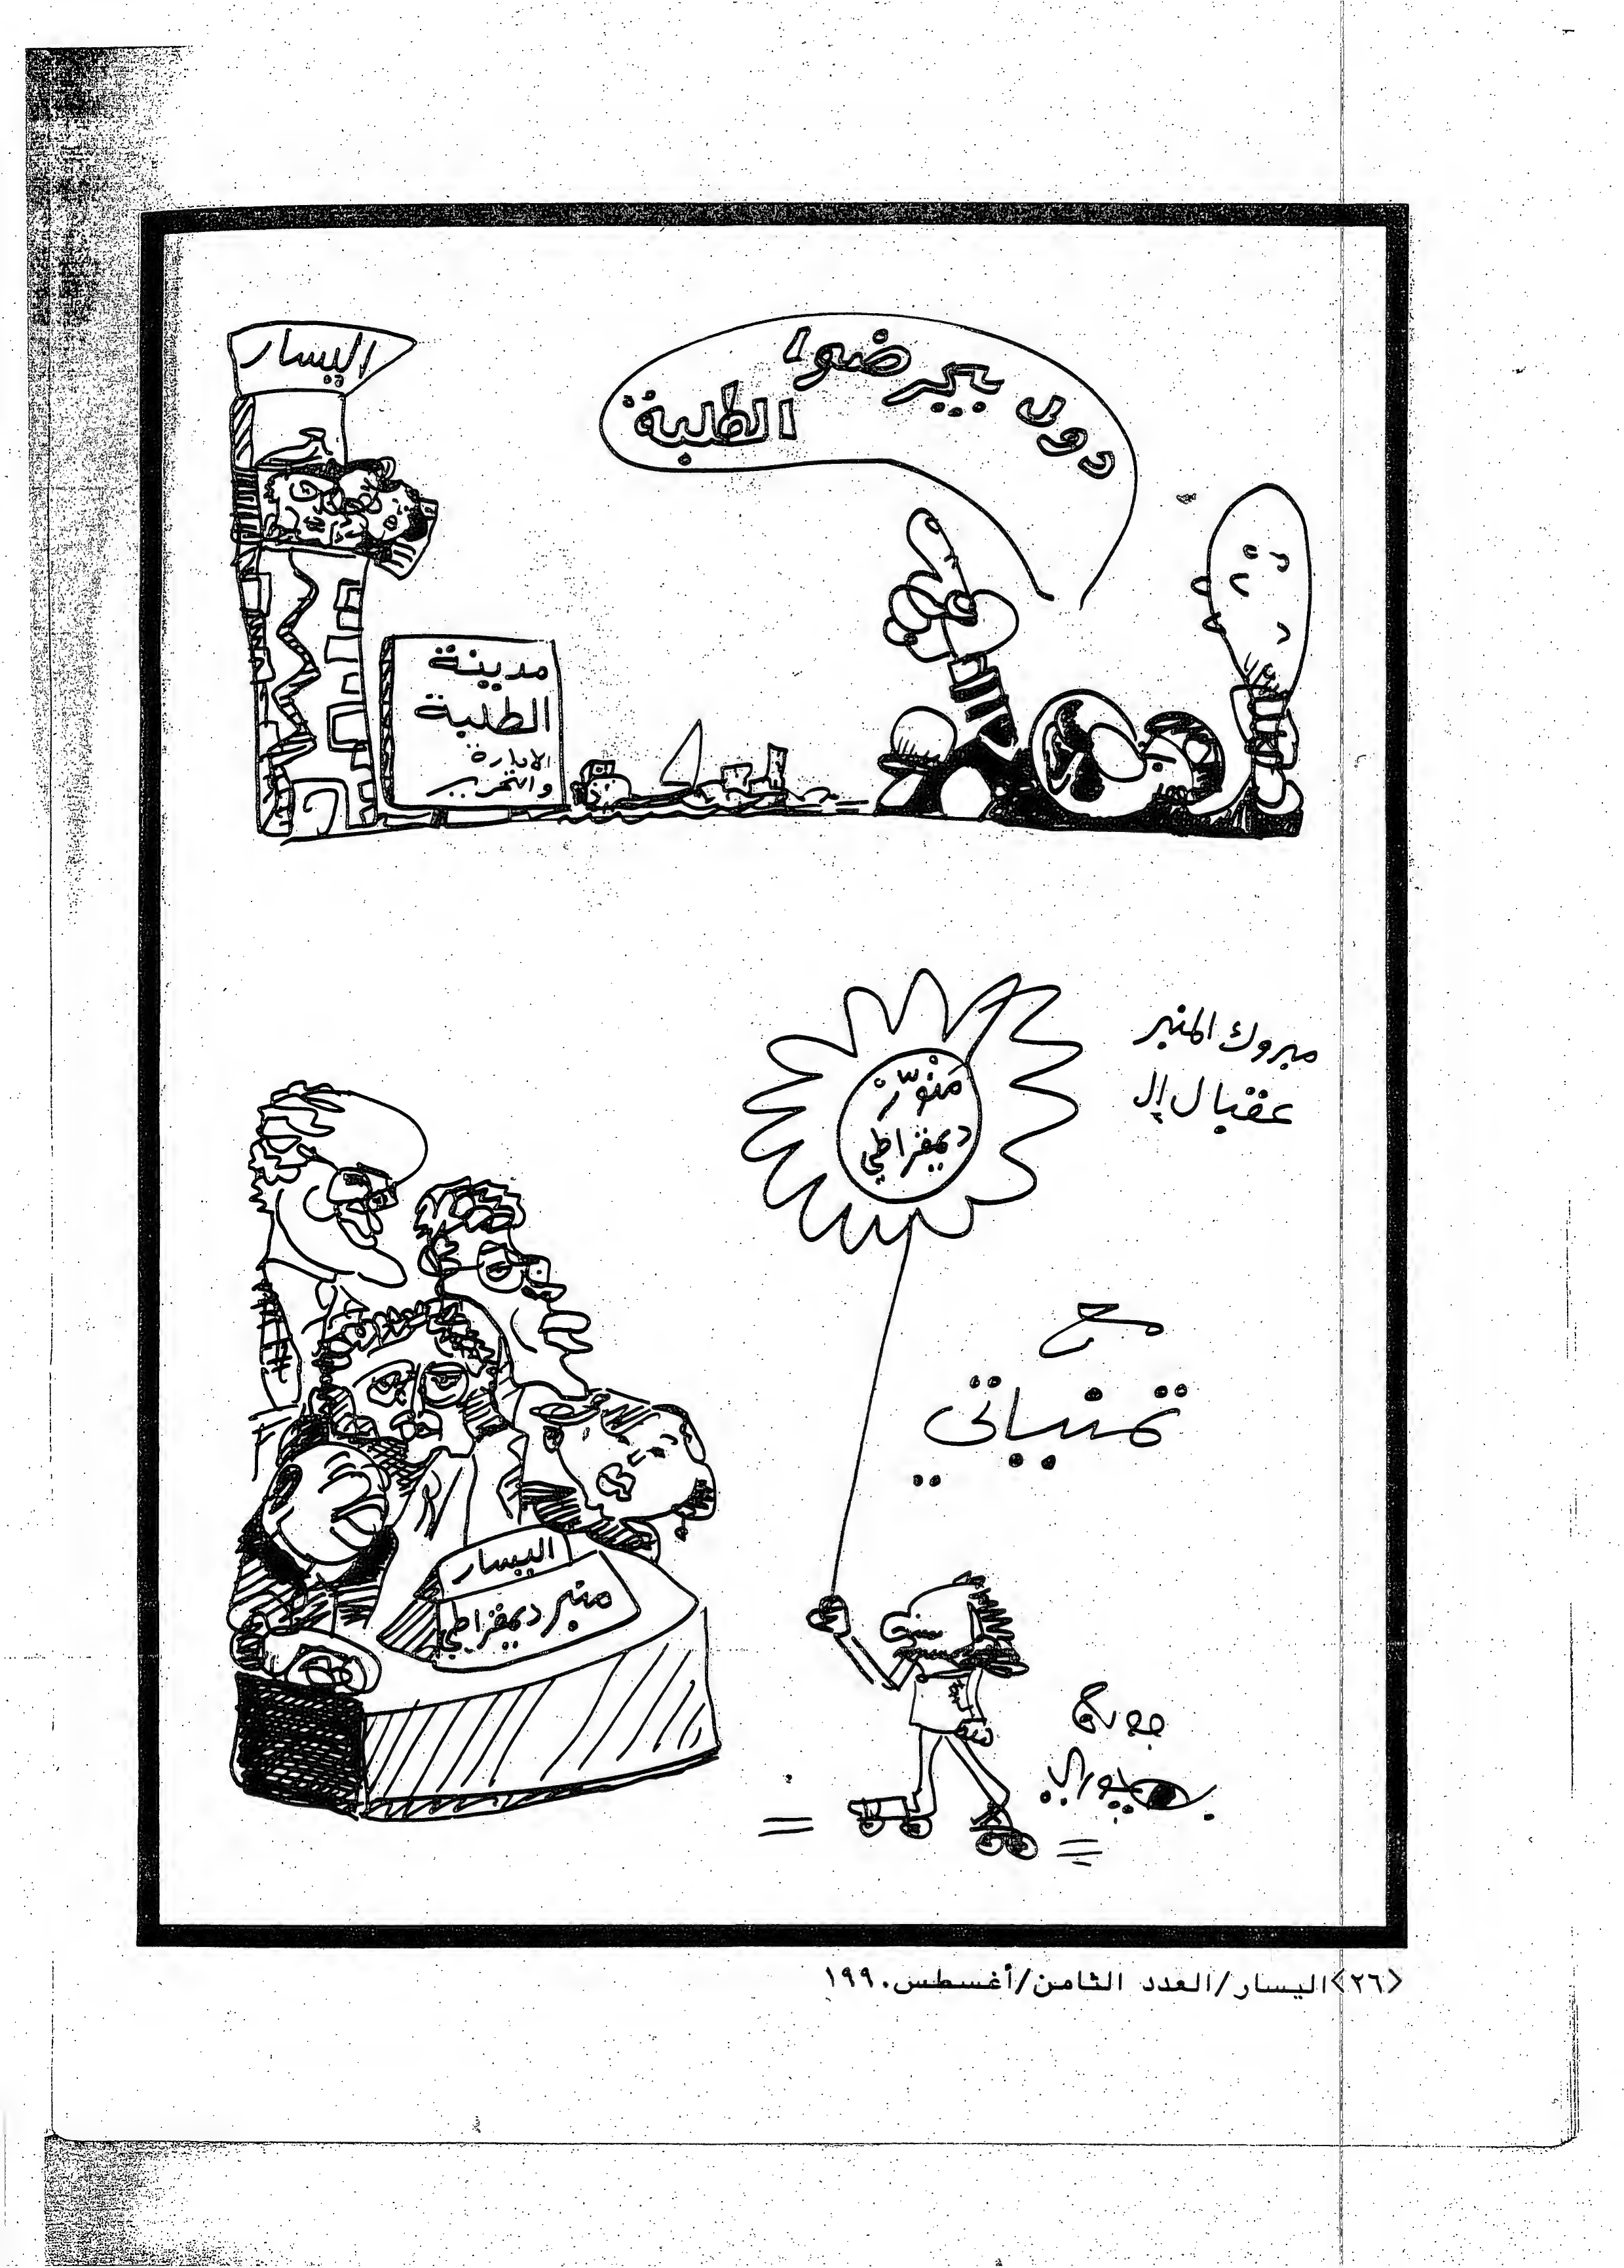 اليسار
دول بيحرضوا
الطلبة
مدينة
الطلبة
الإدارة
والتحرير
مبروك المنبر
عقبال ال
منوّر
ديمقراطي
مع
تمنياتي
اليسار
منبر ديمقراطي
<٢٦>اليسار/العدد الثامن/أغسطس ١٩٩٠